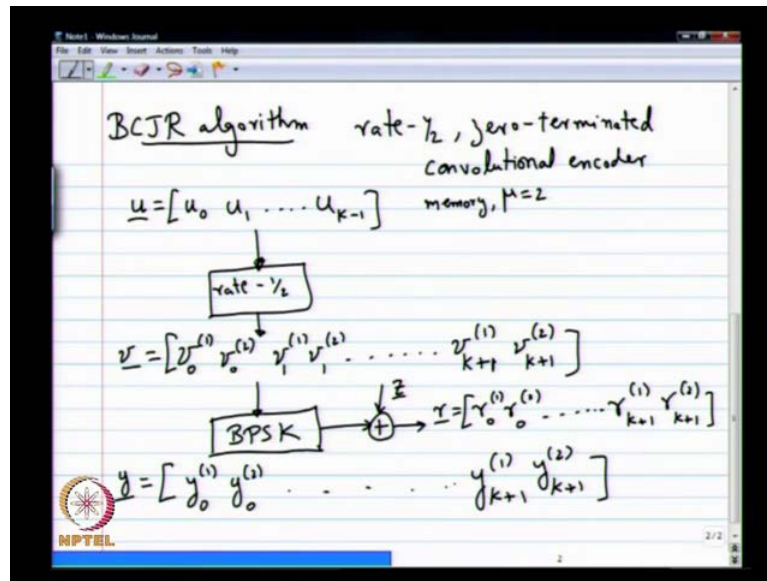 Note1 - Windows Journal
File Edit View Insert Actions Tools Help
BCJR algorithm rate-1/2, zero-terminated
convolutional encoder
memory, μ=2
u = [u_0 u_1 .... u_{k-1}]
rate - 1/2
v = [v_0^{(1)} v_0^{(2)} v_1^{(1)} v_1^{(2)} ...... v_{k+1}^{(1)} v_{k+1}^{(2)}]
z
BPSK + r = [r_0^{(1)} r_0^{(2)} ...... r_{k+1}^{(1)} r_{k+1}^{(2)}]
y = [y_0^{(1)} y_0^{(2)} . . . . . . y_{k+1}^{(1)} y_{k+1}^{(2)}]
NPTEL
2/2
2